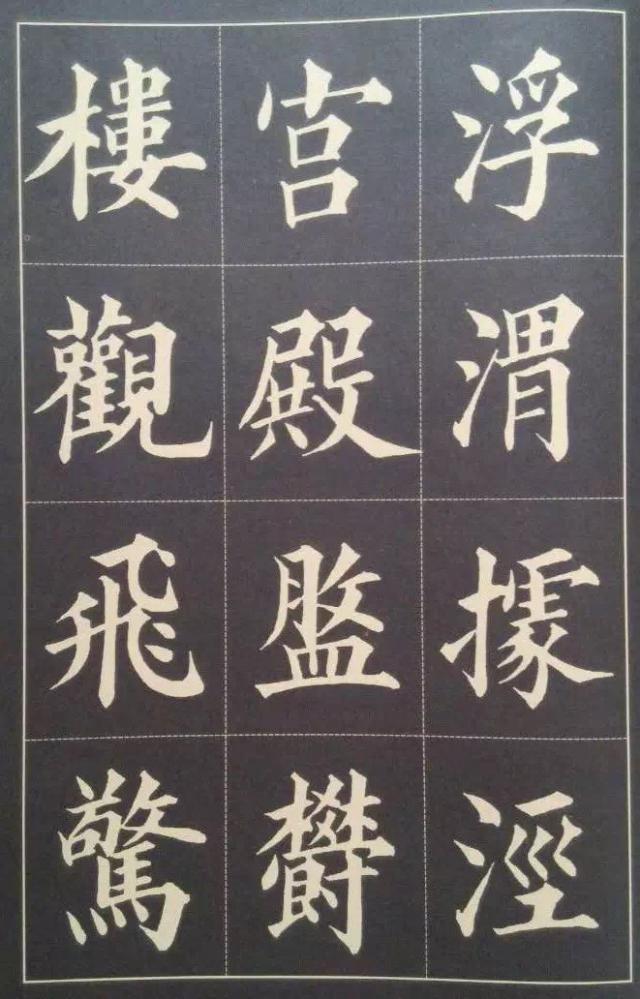 浮渭據涇
宫殿盤鬱
樓觀飛驚